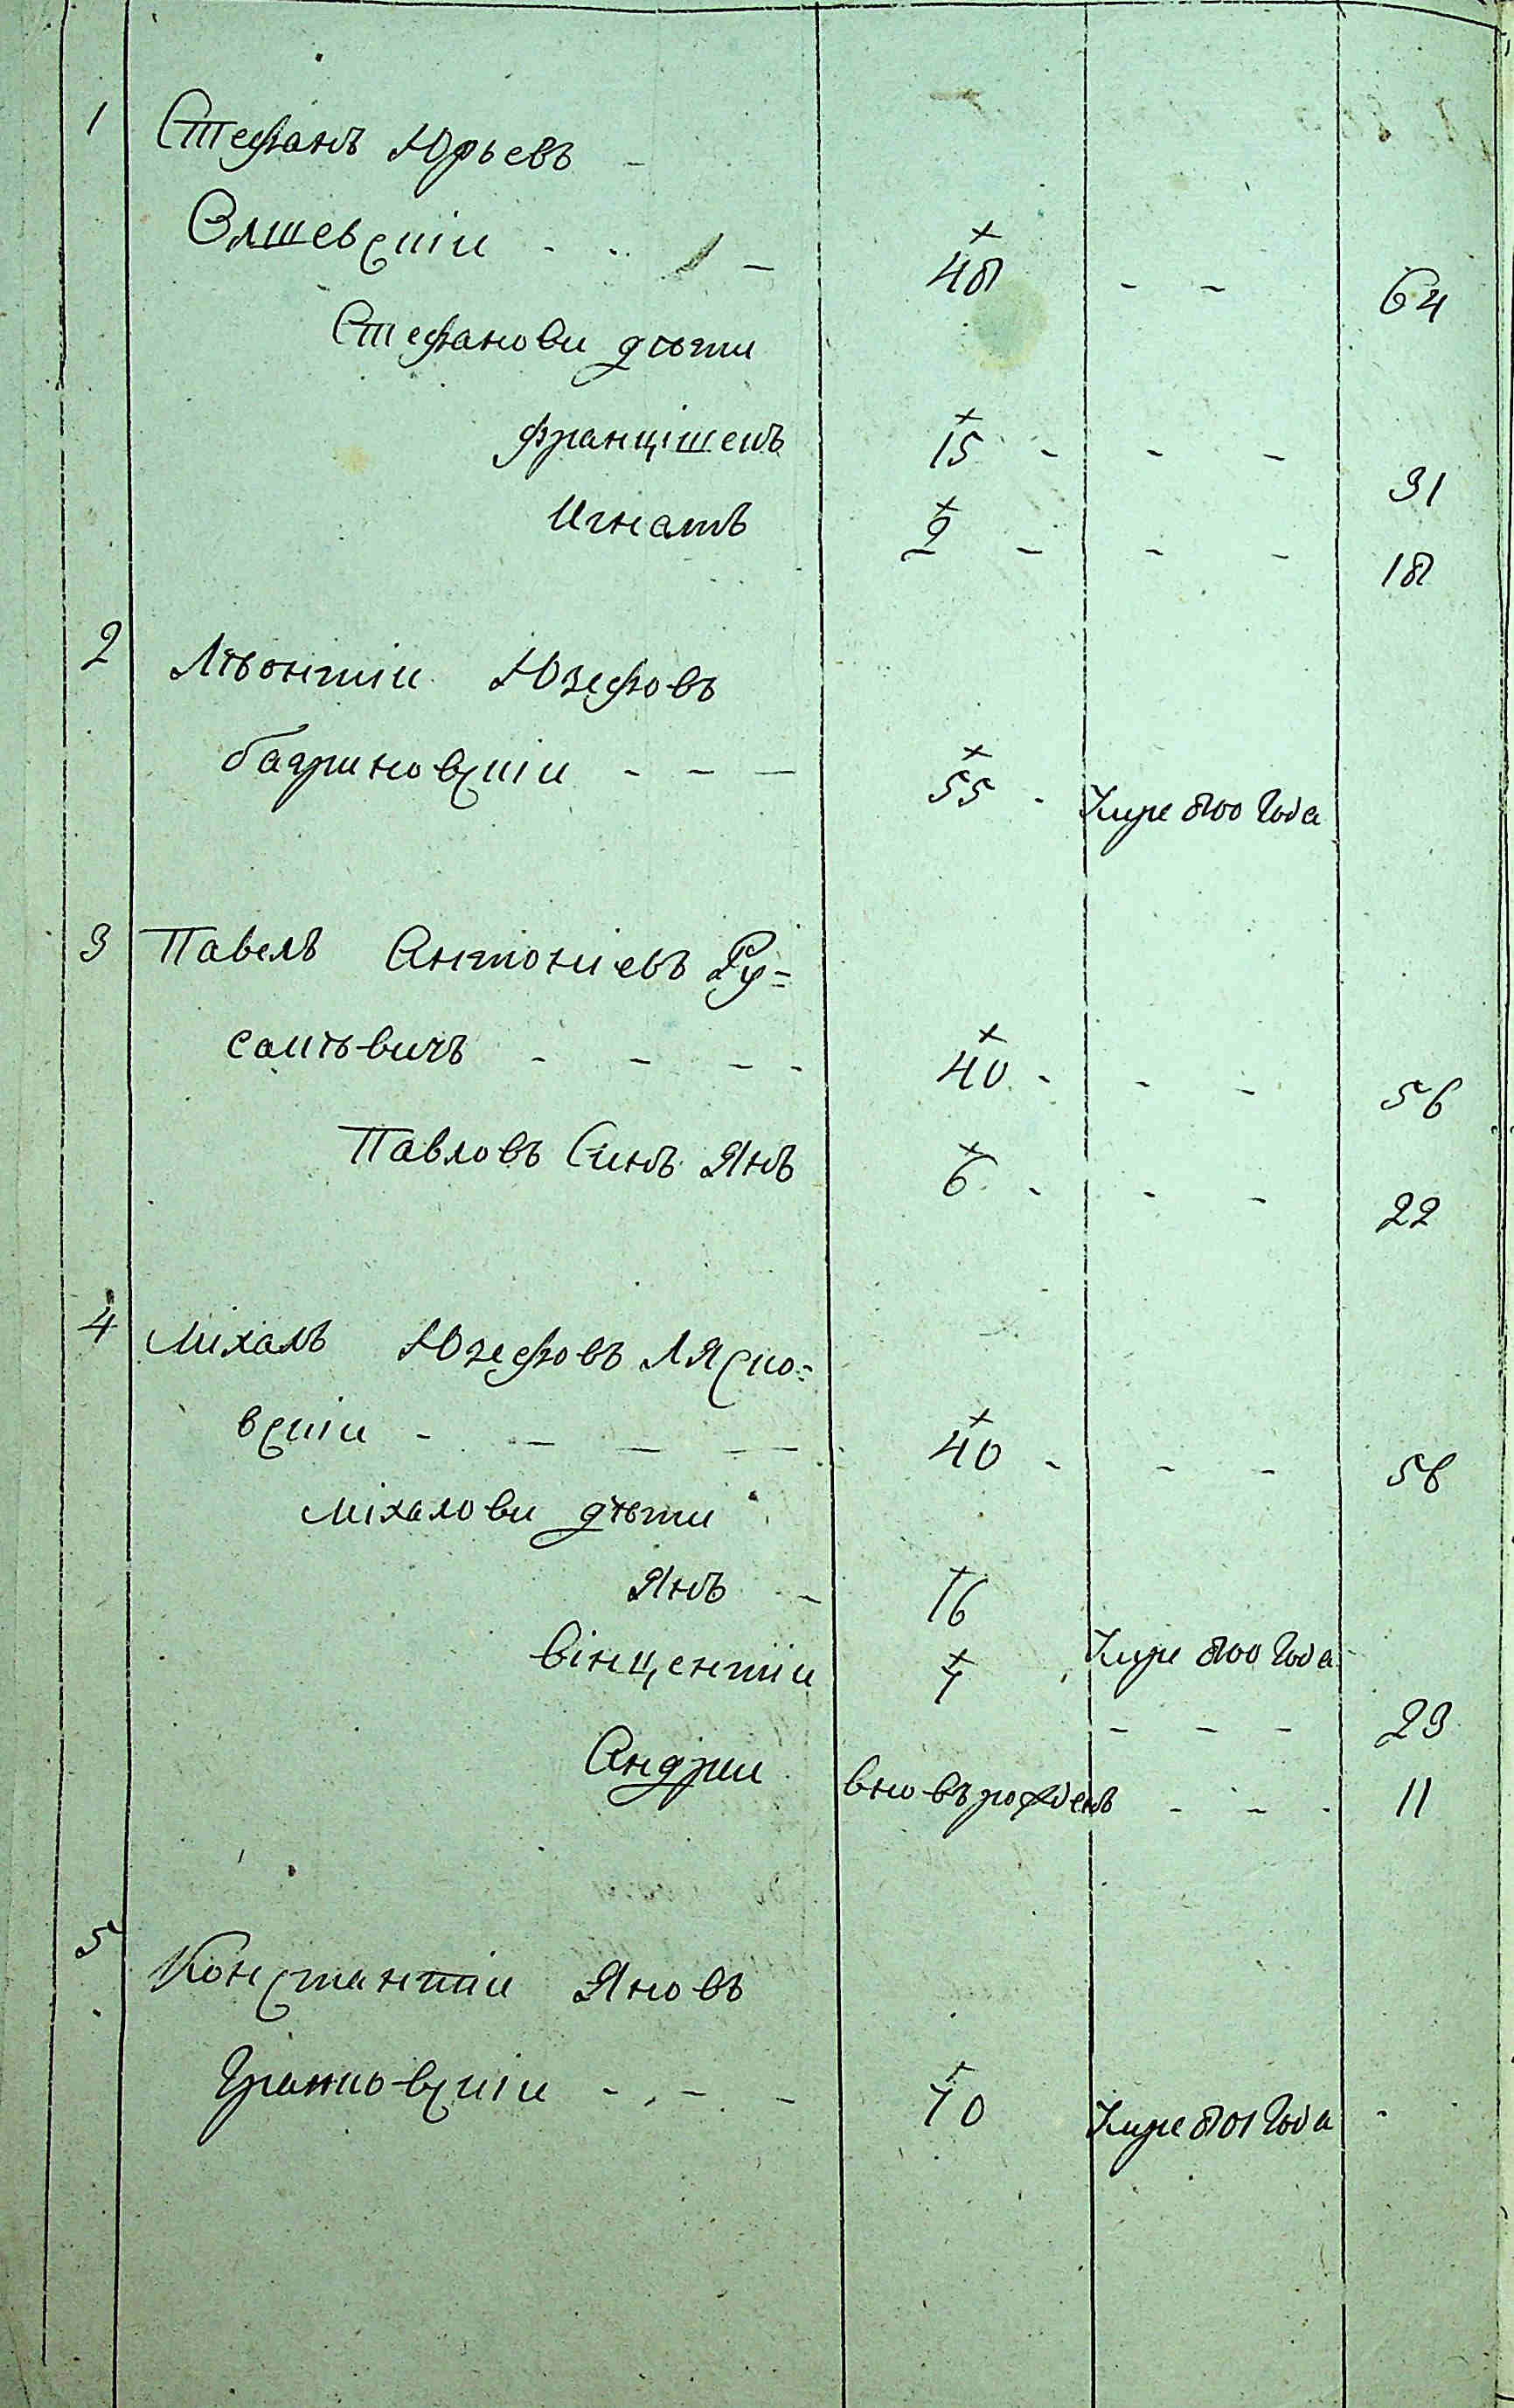 1 Стефанъ Юрьевъ -
Олшевскіи - - - 48 - - 64
Стефанови дѣти
Францішекъ 15 - - - 31
Игнатъ 2 - - - 18
2 Лѣонтіи Юзефовъ
багриновскіи - - - 55 - Умре 800 Года
3 Павелъ Антоніевъ Ру=
сакѣвичъ - - - - 40 - - - 56
Павловъ Синъ Янъ 6 - - - 22
4 Міхалъ Юзефовъ Ляско=
вскіи - - - - 40 - - - 56
Міхалови дѣти
Янъ - 16 Умре 800 Года
вінцентіи 7 - - - 23
Андріи вновъ рожденъ - - - 11
5 Константіи Яновъ
Грановскіи - - - 70 Умре 801 Года -